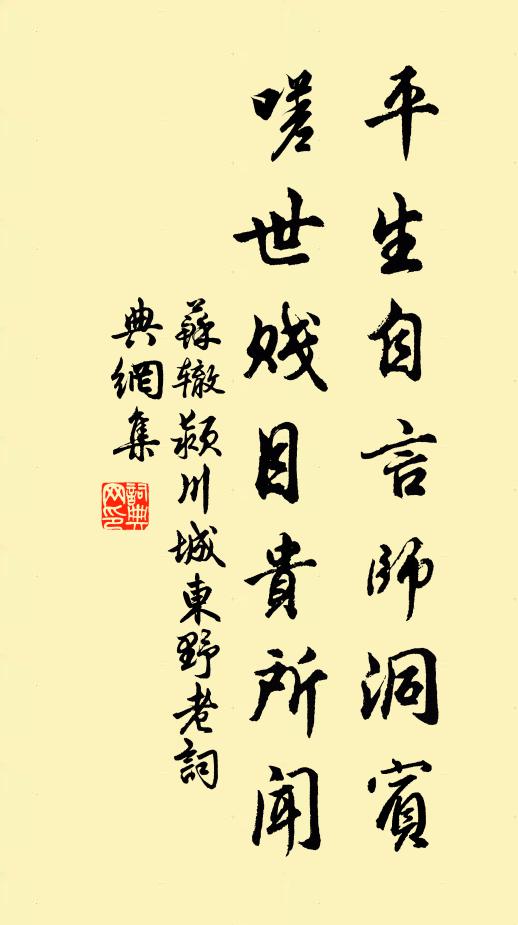 平生自言師洞賓
嗟世賤目貴所聞
蘇轍潁川城東野老詞
典網集
詞典網印